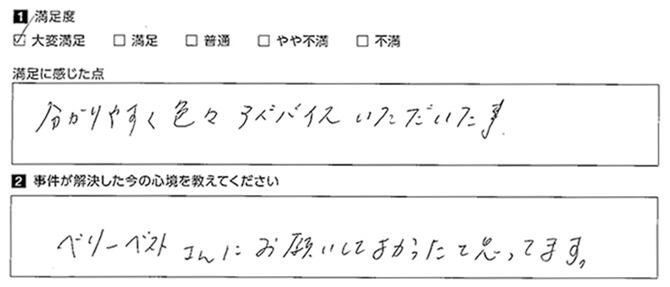 1 満足度
☑ 大変満足 □ 満足 □ 普通 □ やや不満 □ 不満
満足に感じた点
分かりやすく色々アドバイスいただいた事.
2 事件が解決した今の心境を教えてください
ベリーベストさんにお願いしてよかったて思ってます。